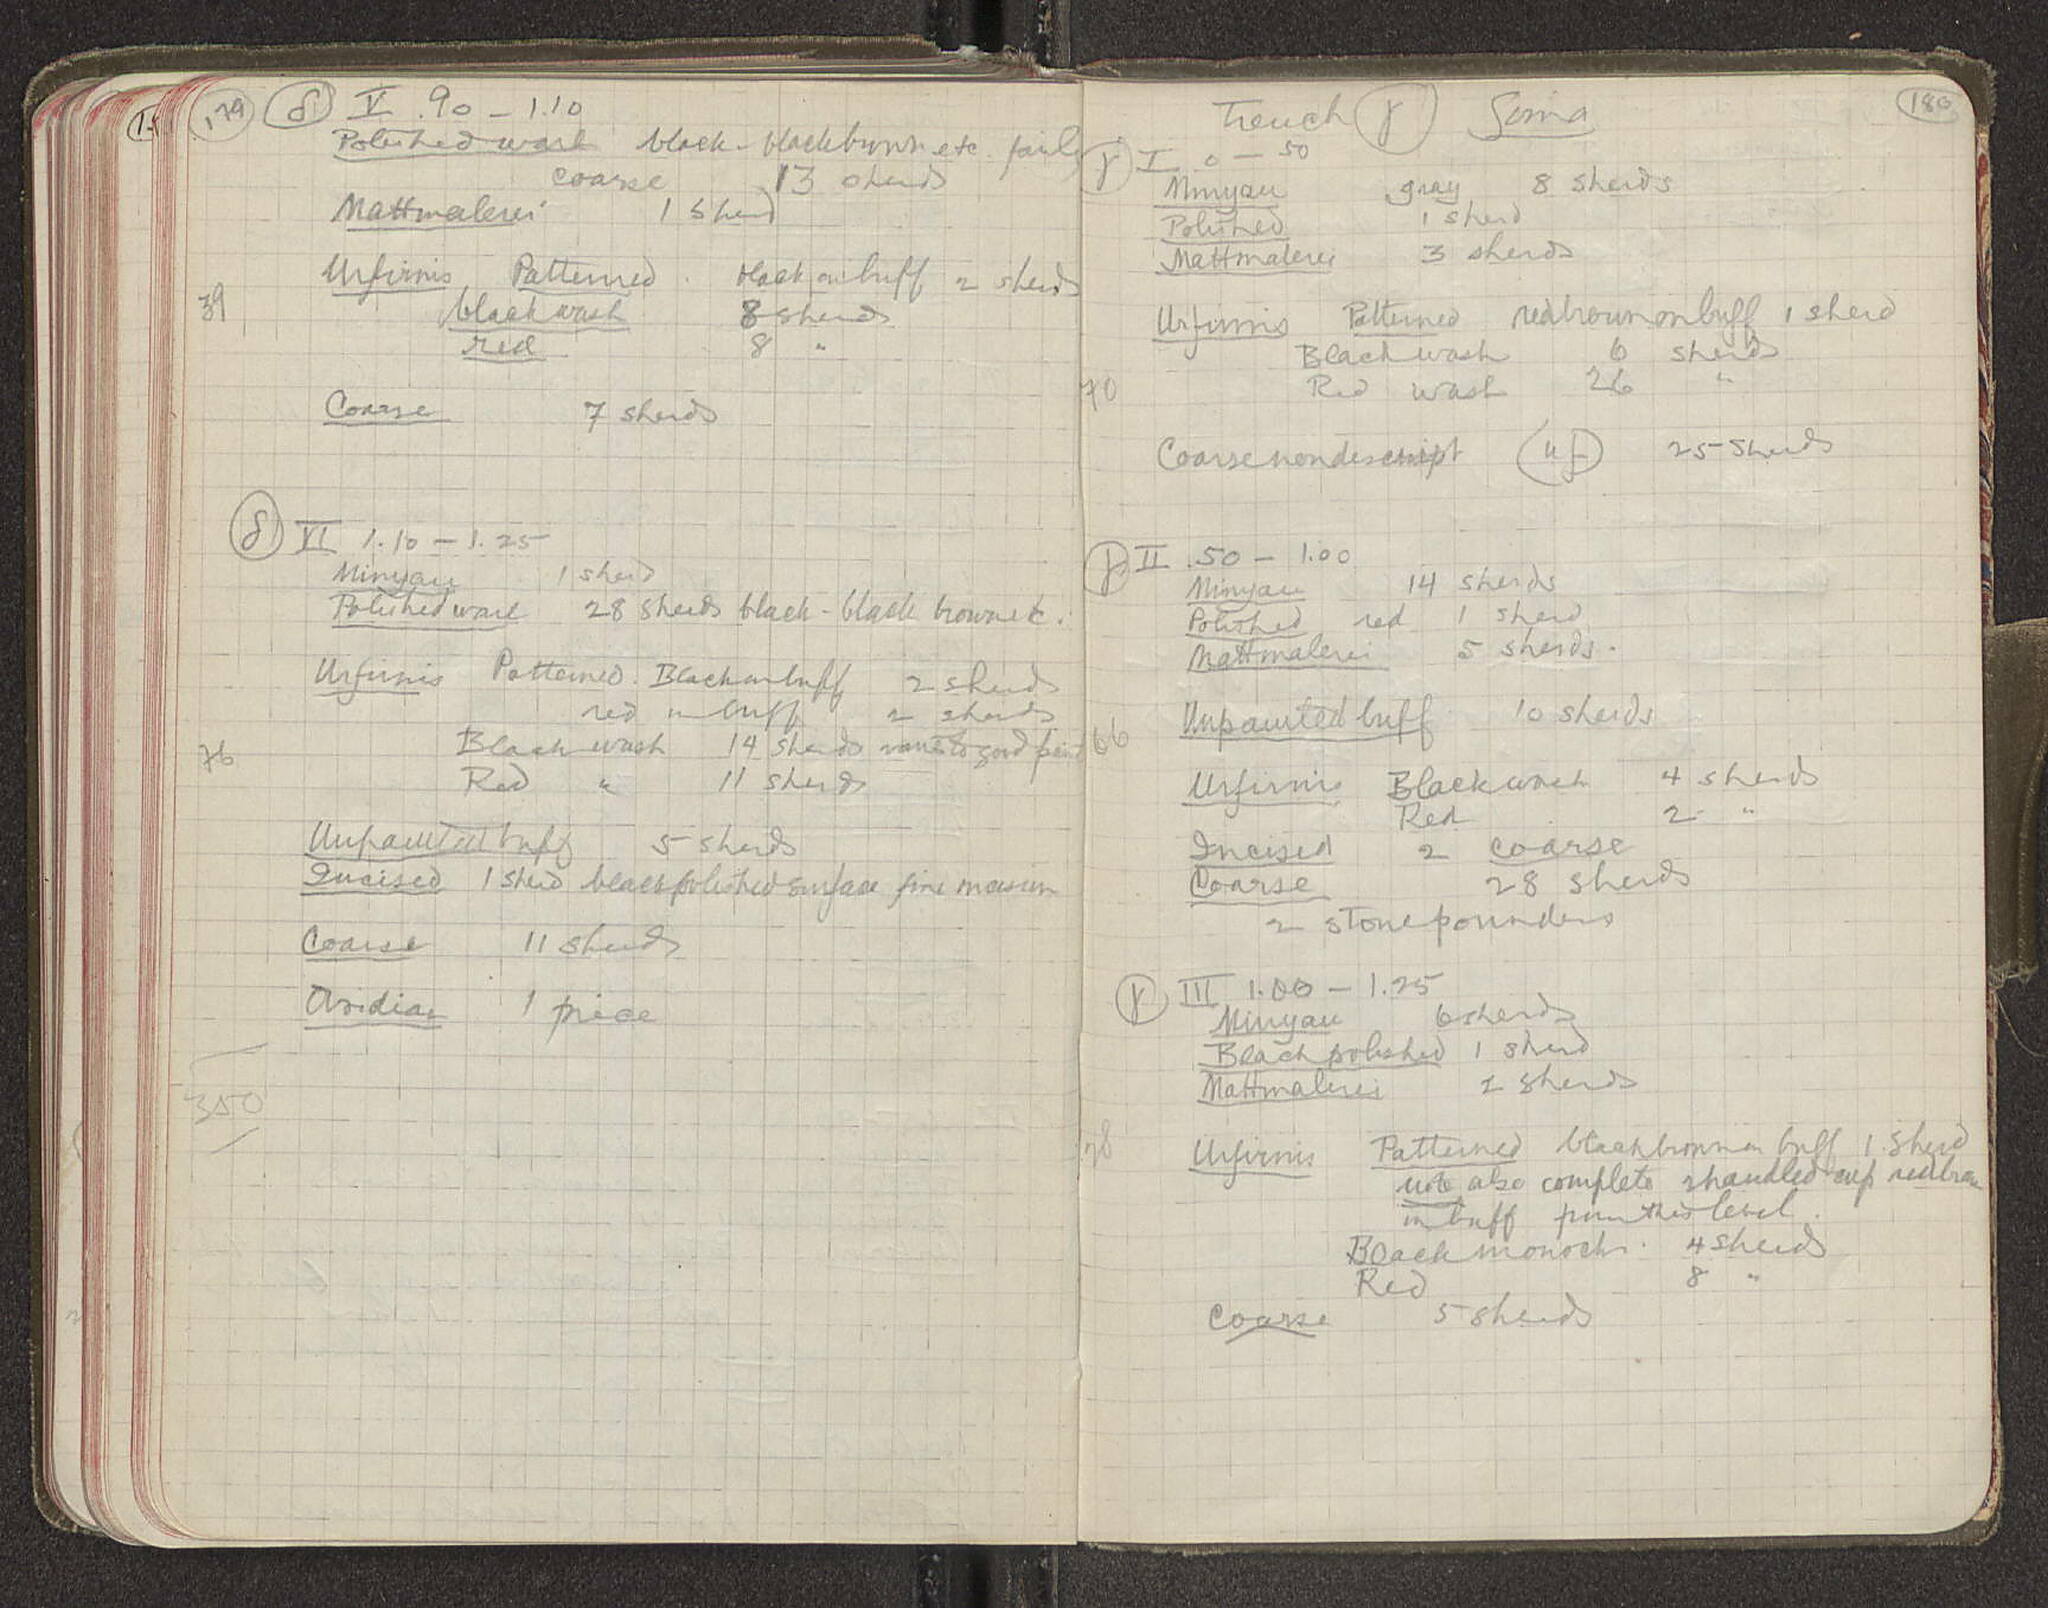 179
δ V .90 – 1.10
Polished ware black – blackbrown etc. fairly
coarse 13 sherds
Mattmalerei 1 sherd
Urfirnis Patterned. black on buff 2 sherds
39
black wash 8 sherds
red 8 "
Coarse 7 sherds
δ VI 1.10 – 1.25
Minyan 1 sherd
Polished ware 28 sherds black – black brown etc.
Urfirnis Patterned. Black on buff 2 sherds
red on buff 2 sherds
76
Black wash 14 sherds some to good paint
Red " 11 sherds
Unpainted buff 5 sherds
Incised 1 sherd black polished surface fine incision
Coarse 11 sherds
1 piece
350
180
Trench γ Soma
γ I 0 – 50
Minyan gray 8 sherds
Polished 1 sherd
Mattmalerei 3 sherds
Urfirnis Patterned redbrown on buff 1 sherd
Black wash 6 sherds
70
Red wash 26 "
Coarse nondescript (uf) 25 sherds
γ II .50 – 1.00
Minyan 14 sherds
Polished red 1 sherd
Mattmalerei 5 sherds.
Unpainted buff 10 sherds
66
Urfirnis Black wash 4 sherds
Red 2 "
Incised 2 coarse
Coarse 28 sherds
2 stone pounders
γ III 1.00 – 1.25
Minyan 6 sherds
Black polished 1 sherd
Mattmalerei 2 sherds
28
Urfirnis Patterned blackbrown on buff 1 sherd
note also complete 2 handled cup redbrown
on buff from this level.
Black monoch. 4 sherds
Red 8 "
Coarse 5 sherds